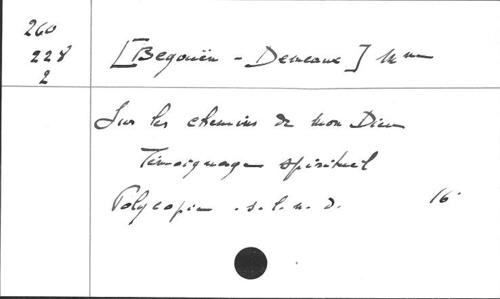 260
228
2
[Begouën - Demeaux] Mme
Sur les chemins de mon Dieu
Témoignage spirituel
Polycopie . s. l. n. d. 16°